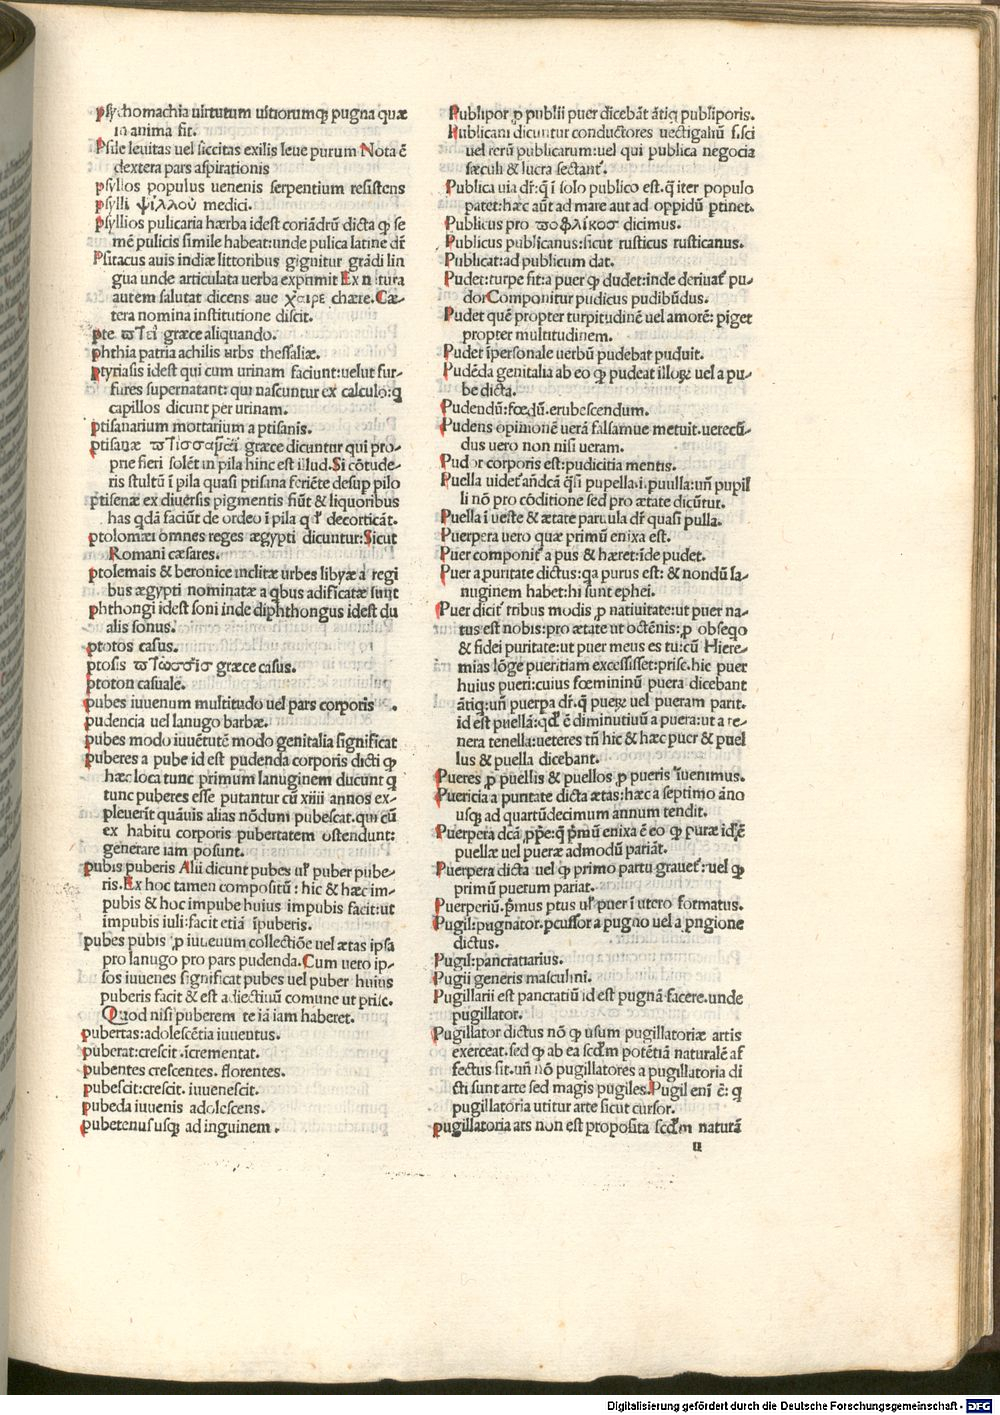 psychomachia uirtutum uitiorumq; pugna quæ
in anima fit.
Psile leuitas uel siccitas exilis leue purum Nota ē
dextera pars aspirationis
psyllos populus uenenis serpentium resistens
psylli ψιλλού medici.
psyllios pulicaria hærba idest coriādrū dicta ꝙ se
mē pulicis simile habeat:unde pulica latine dr̄
Psitacus auis indiæ littoribus gignitur grādi lin
gua unde articulata uerba exprimit Ex natura
autem salutat dicens aue χαιρε chære.Cæ-
tera nomina institutione discit.
pte græce aliquando.
phthia patria achilis urbs thessaliæ.
ptyriasis idest qui cum urinam faciunt:uelut fur-
fures supernatant: qui nascuntur ex calculo:q̄
capillos dicunt per urinam.
ptisanarium mortarium a ptisanis.
ptisanæ græce dicuntur qui pro-
prie fieri solēt in pila hinc est illud.Si cōtude-
ris stultū ī pila quasi ptisana feriēte desup pilo
ptisenæ ex diuersis pigmentis fiūt & liquoribus
has qdā faciūt de ordeo ī pila qd' decorticāt.
ptolomæi omnes reges ægypti dicuntur:Sicut
Romani cæsares.
ptolemais & beronice inclitæ urbes libyæ a regi
bus ægypti nominatæ a qbus ædificatæ sunt
phthongi idest soni inde diphthongus idest du
alis sonus.
ptotos casus.
ptosis græce casus.
ptoton casuale.
pubes iuuenum multitudo uel pars corporis .
pudencia uel lanugo barbæ.
pubes modo iuuētutē modo genitalia significat
puberes a pube id est pudenda corporis dicti ꝙ
hæc loca tunc primum lanuginem ducunt ꝙ
tunc puberes esse putantur cū xiiii annos ex-
pleuerīt quāuis alias nōdum pubescāt.qui cū
ex habitu corporis pubertatem ostendunt:
generare iam possunt.
pubis puberis Alii dicunt pubes ul' puber pube-
ris.Ex hoc tamen compositū: hic & hæc im-
pubis & hoc impube huius impubis facit:ut
impubis iuli:facit etiā īpuberis.
pubes pubis ꝓ iuuenum collectiōe uel ætas ipsa
pro lanugo pro pars pudenda.Cum uero ip-
sos iuuenes significat pubes uel puber huius
puberis facit & est adiectiuū comune ut prisc.
Quod nisi puberem te iā iam haberet.
pubertas:adolescētia iuuentus.
puberat:crescit.īcrementat.
pubentes crescentes. florentes.
pubescit:crescit. iuuenescit.
pubeda iuuenis adolescens.
pubetenus usq; ad inguinem.
Publipor ꝓ publii puer dicebāt ātiq publiporis.
Publicani dicuntur conductores uectigaliū f.sci
uel rerū publicarum:uel qui publica negocia
sæculi & lucra sectant'.
Publica uia dr̄:q̄ ī solo publico est.q̄ iter populo
patet:hæc aūt ad mare aut ad oppidū ptinet.
Publicus pro dicimus.
Publicus publicanus:sicut rusticus rusticanus.
Publicat:ad publicum dat.
Pudet:turpe fit:a puer ꝙ dudet:inde deriuat' pu-
dor Componitur pudicus pudibūdus.
Pudet quē propter turpitudinē uel amorē: piget
propter multitudinem.
Pudet īpersonale uerbū pudebat puduit.
Pudēda genitalia ab eo ꝙ pudeat illoꝝ uel a pu-
be dicta.
Pudendū:fœdū.erubescendum.
Pudens opinionē uerā falsamue metuit.uerecū-
dus uero non nisi ueram.
Pudor corporis est:pudicitia mentis.
Puella uidet' andcā q̄si pupella.i.puulla:uñ pupil
li nō pro cōditione sed pro ætate dicūtur.
Puella ī ueste & ætate paruula dr̄ quasi pulla.
Puerpera uero quæ primū enixa est.
Puer componit' a pus & hæret:īde pudet.
Puer a puritate dictus:qa purus est: & nondū la-
nuginem habet:hi sunt ephei.
Puer dicit' tribus modis ꝓ natiuitate:ut puer na-
tus est nobis:pro ætate ut octēnis:ꝓ obseqo
& fidei puritate:ut puer meus es tu:cū Hiere-
mias lōge pueritiam excessisset:prisc. hic puer
huius pueri:cuius fœmininū puera dicebant
ātiq:uñ puerpa dr̄.q̄ pueꝝ uel pueram parit.
id est puellā:qd' ē diminutiuū a puera:ut a te-
nera tenella:ueteres tñ hic & hæc puer & puel
lus & puella dicebant.
Pueres ꝓ puellis & puellos ꝓ pueris īuenimus.
Puericia a puritate dicta ætas:hæc a septimo āno
usq; ad quartūdecimum annum tendit.
Puerpera dcā ꝓpe:q̄ p̄mū enixa ē eo ꝙ puræ id ē
puellæ uel pueræ admodū pariāt.
Puerpera dicta uel ꝙ primo partu grauet':uel ꝙ
primū puerum pariat.
Puerperiū.p̄mus ptus ul' puer ī utero formatus.
Pugil:pugnator.pcussor a pugno uel a pngione
dictus.
Pugil:pancratiarius.
Pugii generis masculini.
Pugillarii est pancratiū id est pugnā facere.unde
pugillator.
Pugillator dictus nō ꝙ usum pugillatoriæ artis
exerceat.sed ꝙ ab ea scdm potētiā naturalē af
fectus sit.uñ nō pugillatores a pugillatoria di
cti sunt arte sed magis pugiles.Pugil enī ē: q
pugillatoria utitur arte sicut cursor.
pugillatoria ars non est proposita scdm naturā
Digitalisierung gefördert durch die Deutsche Forschungsgemeinschaft - DFG